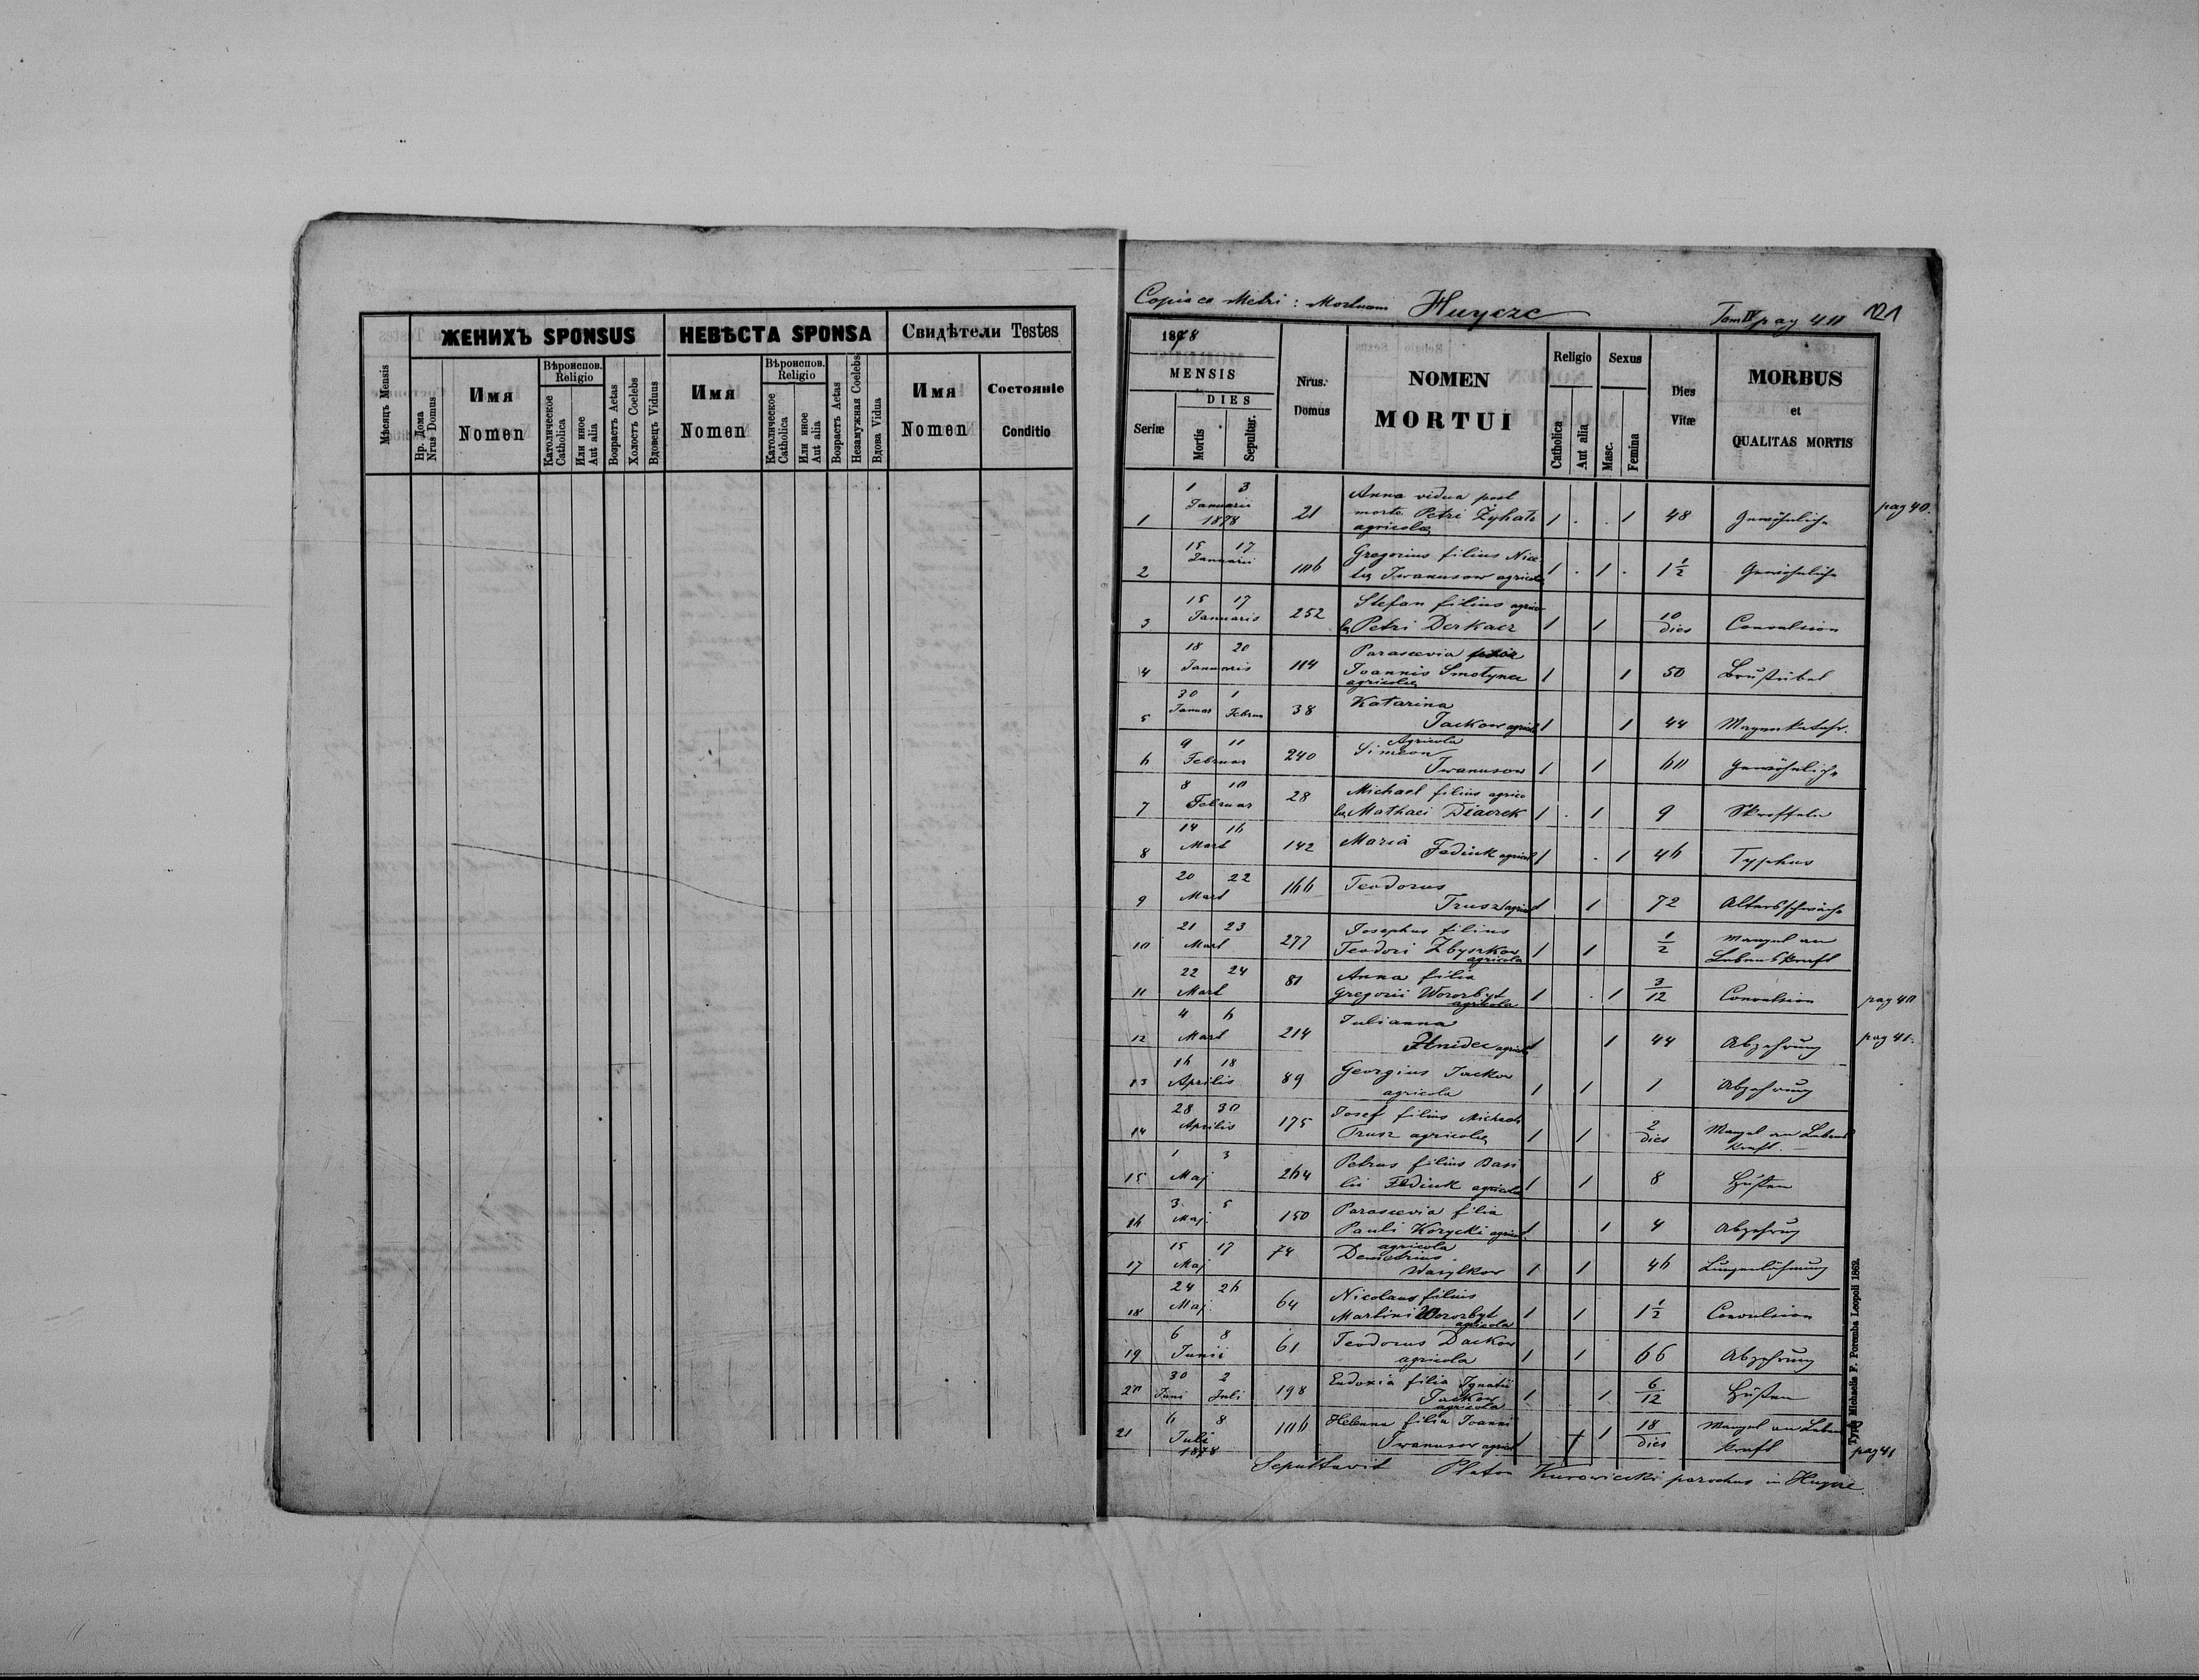 Мѣсяцъ Mensis
ЖЕНИХЪ SPONSUS
НЕВѢСТА SPONSA
Свидѣтели Testes
Нр. Дома
Nrus Domus
Имя
Nomen
Вѣроиспов.
Religio
Католическое
Catholica
Или иное
Aut alia
Возрастъ Aetas
Холостъ Coelebs
Вдовецъ Viduus
Имя
Nomen
Вѣроиспов.
Religio
Католическое
Catholica
Или иное
Aut alia
Возрастъ Aetas
Незамужная Coelebs
Вдова Vidua
Имя
Nomen
Состоянiе
Conditio
Copia ex Metri: Mortuorum Huycze Tom IV pag 40 121
1878
MENSIS
DIES
Seriæ
Mortis
Sepultur.
Nrus.
Domus
NOMEN
MORTUI
Religio
Catholica
Aut alia
Sexus
Masc.
Femina
Dies
Vitæ
MORBUS
et
QUALITAS MORTIS
1 3 Anna vidua post pag 40.
1 Januarii 21 morte Petri Zyhato 1 . . 1 48 Gewöhnliche
1878 agricolæ
15 17 Gregorius filius Nico
2 Januarii 106 læ Iwanusow agricolæ 1 . 1 . 1½ Gewöhnliche
15 17 Stefan filius agrico
3 Januaris 252 læ Petri Derkacz 1 1 10 dies Convulsion
18 20 Parascevia
4 Januaris 114 Joannis Smotynec 1 1 50 Brustübel
agricolæ
30 1 Katarina
5 Januar Februar 38 Jackow agricola 1 1 44 Magenkatahr.
9 11 Agricola
6 Februar 240 Simeon
Iwanusow 1 1 60 Gewöhnliche
8 10 Michael filius agrico
7 Februar 28 læ Mathaei Diaczek 1 . 1 9 Skroffeln
14 16 Maria
8 Mart 142 Fediuk agricol 1 . 1 46 Typhus
20 22 Teodorus
9 Mart 166 Trusz agricol 1 1 72 Altersschwäche
21 23 Josephus filius Mangel an
10 Mart 277 Teodori Zbyszkow 1 1 1/2 Lebenskraft
agricola
22 24 Anna filia
11 Mart 81 Gregorii Worozbyt 1 . 1 3/12 Convulsion pag 40
agricola
4 6 Julianna
12 Mart 214 Hnidec agricola 1 1 44 Abzehrung pag 41.
16 18 Georgius Jackow
13 Aprilis 89 agricola 1 1 1 Abzehrung
28 30 Josef filius Michaeli
14 Aprilis 175 Trusz agricolæ 1 1 2 dies Mangel an Lebens
kraft. —
1 3 Petrus filius Basi
15 Maj 264 lii Fediuk agricola 1 1 8 Husten
3 5 Parascevia filia
16 Maj 150 Pauli Korycki agricol 1 1 4 Abzehrung
15 17 agricola
17 Maj 74 Demetrius
Wasylkow 1 1 46 Lungenlähmung
24 26 Nicolaus filius
18 Maj 64 Martini Worozbyt 1 1 1½ Convulsion
agricola
6 8 Teodorus Dackow
19 Junii 61 agricola 1 1 66 Abzehrung
30 2 Eudoxia filia Ignatii
20 Juni Juli 198 Jackow 1 1 6/12 Husten
agricola
6 8 Helenna filia Joanni
21 Juli 106 Iwanusow agricol 1 1 18 dies Mangel an Lebens
1878 kraft pag 41
Sepultavit Platon Kurowiecki parochus in Huycze
Typis Michaelis F. Poremba Leopoli 1869.